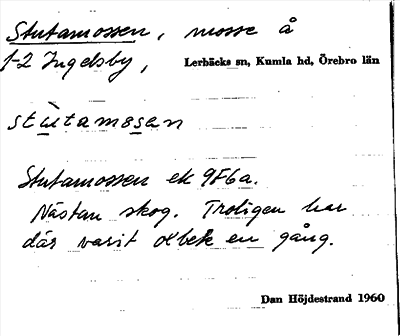 Stutamossen, mosse å
1-2 Ingelsby, Lerbäcks sn, Kumla hd, Örebro län
stùtamosan
Stutamossen ek 9F6a.
Nästan skog. Troligen har
där varit olbete en gång.
Dan Höjdestrand 1960